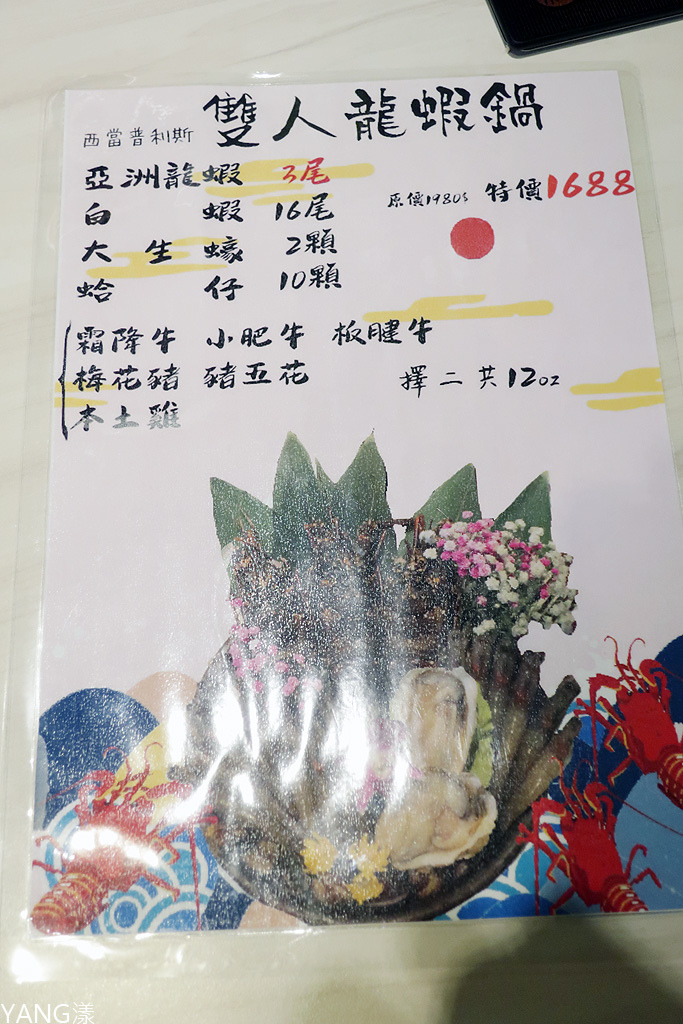 西當普利斯 雙人龍蝦鍋
亞洲龍蝦 3尾
原價1980$ 特價1688
白蝦 16尾
大生蠔 2顆
蛤仔 10顆
霜降牛 小肥牛 板腱牛
梅花豬 豬五花
擇二共12oz
本土雞
YANG漾